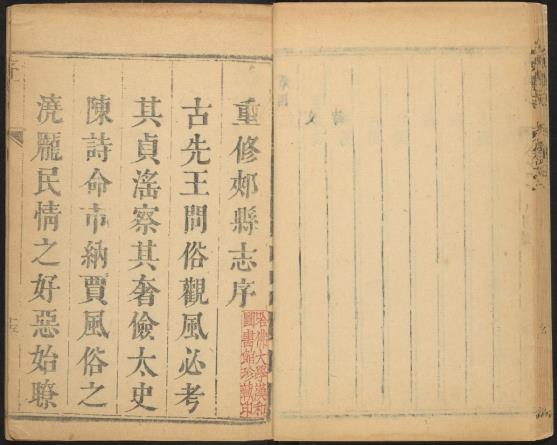 重修郟縣志序
古先王問俗觀風必考
其貞滛察其奢儉太史
陳詩命市納賈風俗之
澆龎民情之好惡始瞭
哈佛大學漢和
圖書館珍藏印